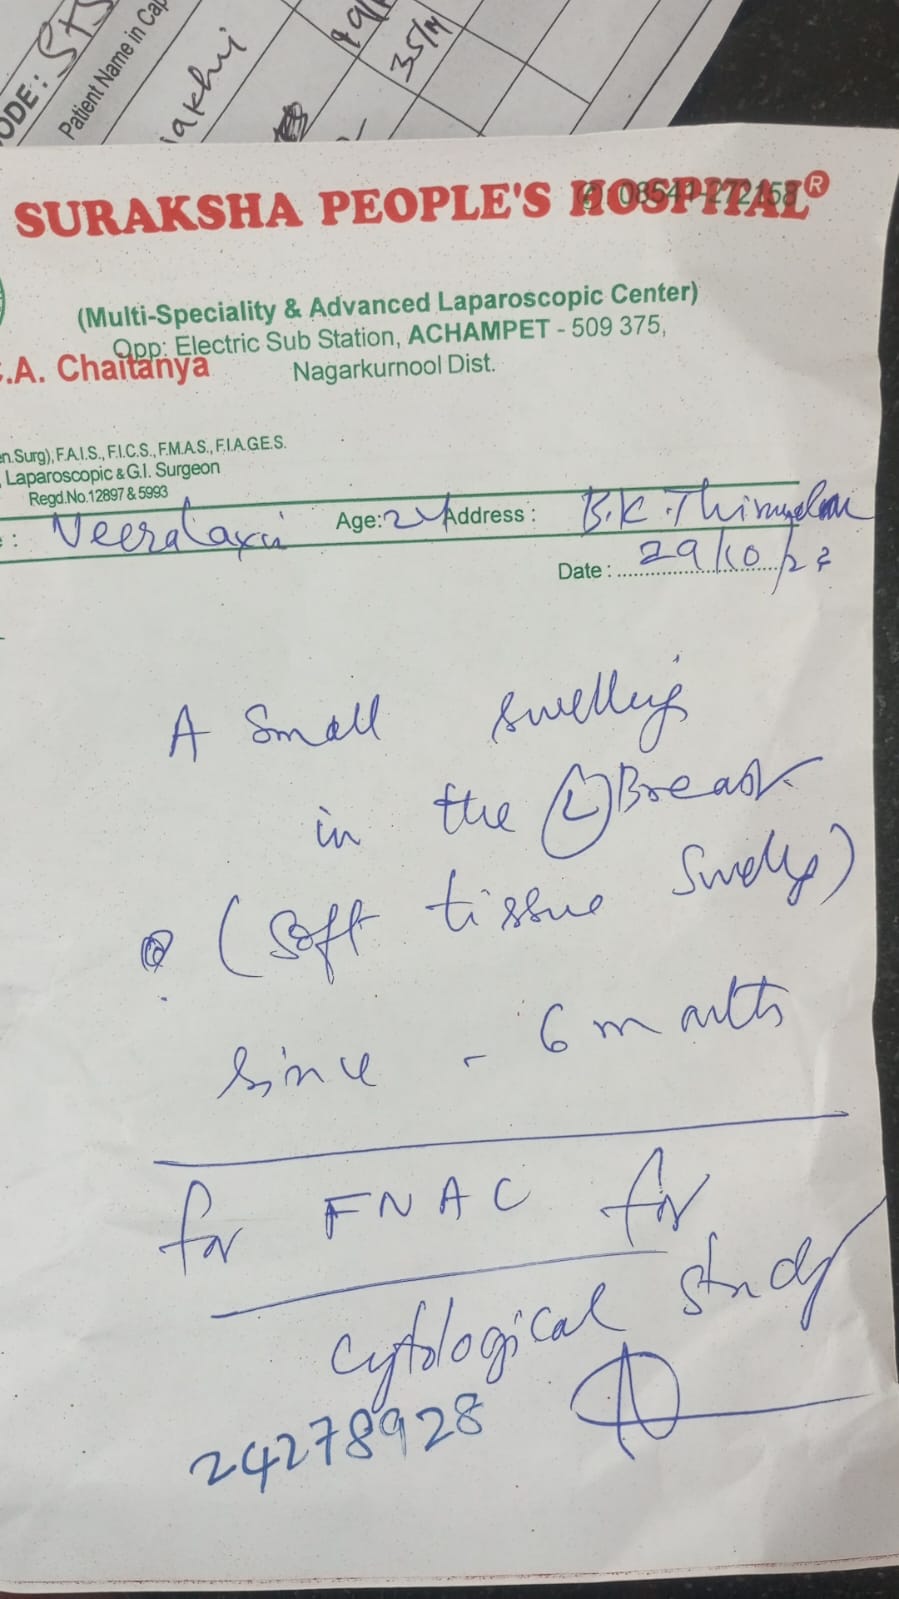 ODE: STS
Patient Name in Cap
akhi
35/M
SURAKSHA PEOPLE'S HOSPITAL®
08541-272158
(Multi-Speciality & Advanced Laparoscopic Center)
Opp: Electric Sub Station, ACHAMPET - 509 375,
.A. Chaitanya
Nagarkurnool Dist.
n.Surg), F.A.I.S., F.I.C.S., F.M.A.S., F.I.A.G.E.S.
Laparoscopic & G.I. Surgeon
Regd.No.12897 & 5993
: Veeralaxmi Age: 24 Address : B.K.
Date : 29/10/
A small swelling
in the (L) Breast
(Soft tissue swelling)
since - 6 months
for FNAC for
cytological study
24278928